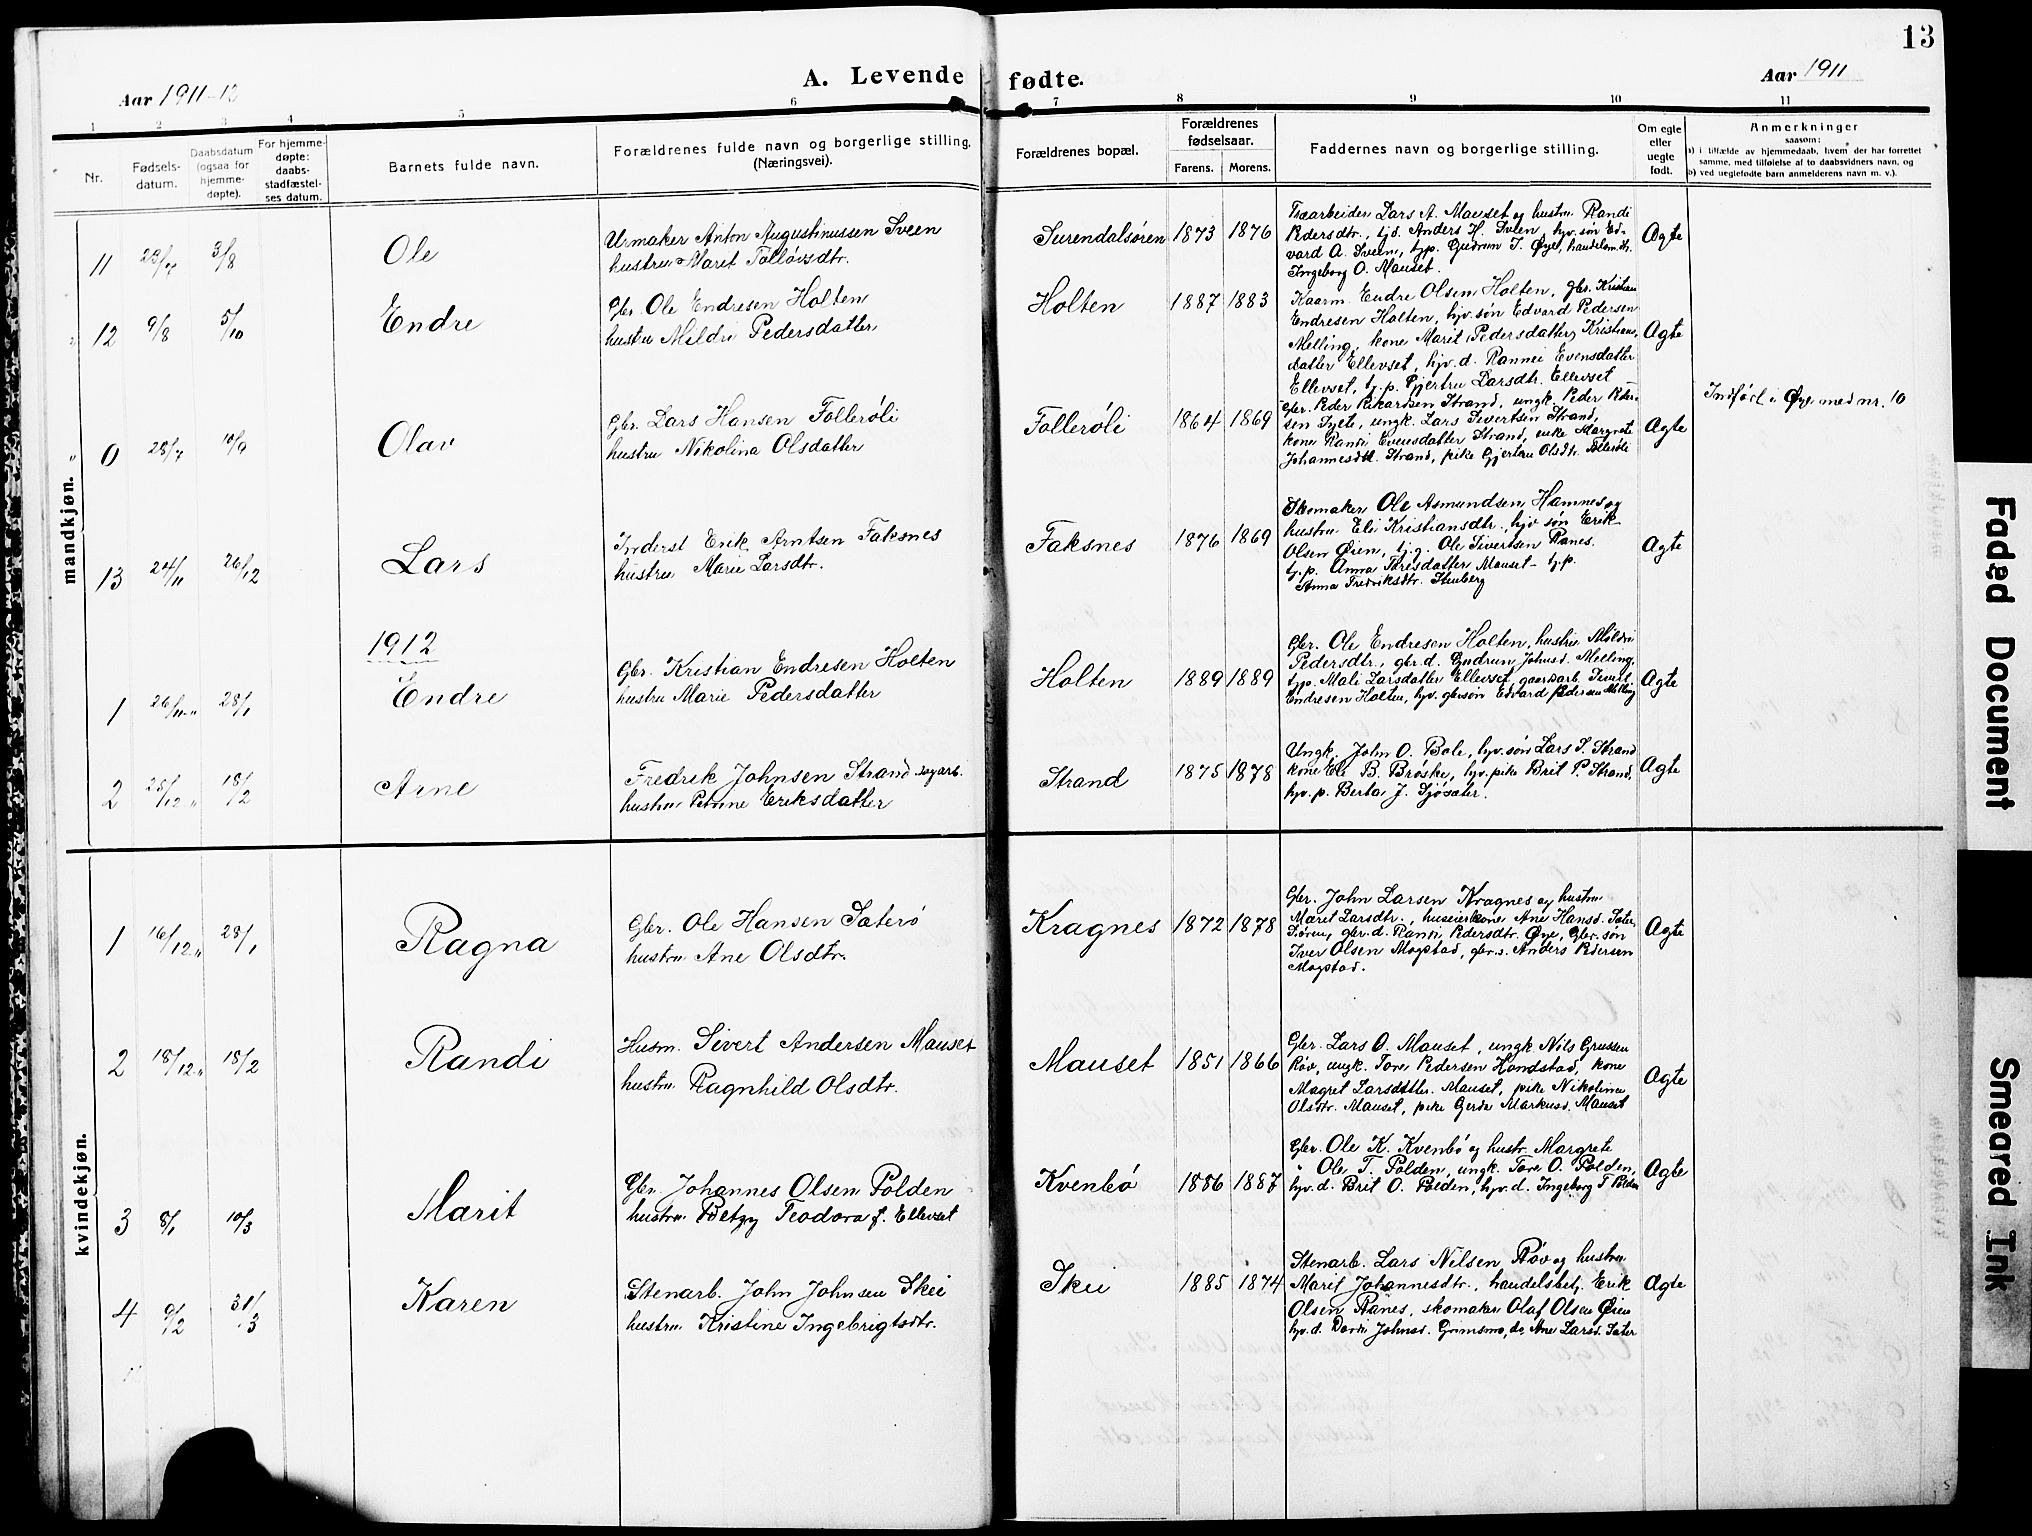 13
A. Levende fødte.
Aar 1911-12
Aar 1911
1 2 3 4 5 6 7 8 9 10 11
Nr.
Fødsels-
datum.
Daabsdatum
(ogsaa for
hjemme-
døpte).
For hjemme-
døpte:
daabs-
stadfæstel-
ses datum.
Barnets fulde navn.
Forældrenes fulde navn og borgerlige stilling.
(Næringsvei).
Forældrenes bopæl.
Forældrenes
fødselsaar.
Farens. Morens.
Faddernes navn og borgerlige stilling.
Om egte
eller
uegte
født.
Anmerkninger
saasom:
a) i tilfælde av hjemmedaab, hvem der har forrettet
samme, med tilføielse af to daabsvidners navn, og
b) ved uegtefødte barn anmelderens navn m. v.).
mandkjøn.
11 23/7 3/8 Ole
Urmaker Anton Augustinussen Sveen
hustru Marit Tolløvsdtr.
Surendalsøren 1873 1876
Træarbeider Lars A. Mauset og hustru Randi
Pedersdtr., tj.d. Anders H. Sveen, hjv. søn Ed-
vard A. Sveen, tjp. Gudrun I. Øye, handelsm.dtr.
Ingeborg O. Mauset.
Ægte
12 9/8 5/10 Endre
Gbr. Ole Endresen Holten
hustru Mildri Pedersdatter
Holten 1887 1883
Kaarm. Endre Olsen Holten, gbr. Kristian
Endresen Holten, hjv. søn Edvard Pedersen
Melling, kone Marit Pedersdatter, Kristians-
datter Ellevset, hjv. d. Rannei Evensdatter
Ellevset, tj.p. Gjertru Larsdtr. Ellevset
Ægte
0 28/7 10/9 Olav
Gbr. Lars Hansen Follerøli
hustru Nikolina Olsdatter
Follerøli 1864 1869
Gbr. Peder Rikardsen Strand, ungk. Peder Peder-
sen Syete, ungk. Lars Sivertsen Strand,
kone Randi Evensdatter Strand, enke Margrete
Johannesdtr. Strand, pike Gjertru Olsdtr. Follerøli
Ægte
Indført i Øye med nr. 10
13 24/11 26/12 Lars
Inderst Erik Arntsen Faksnes
hustru Marie Larsdtr.
Faksnes 1876 1869
Skomaker Ole Asmundsen Hamnes og
hustru Eli Kristiansdtr., hjv søn Erik
Olsen Øien, tj.g. Ole Sivertsen Ranes.
tj.p. Anna Larsdatter Mauset - tj.p.
Anna Fredriksdtr. Stenberg
Ægte
1912
1 26/11 " 28/1 Endre
Gbr. Kristian Endresen Holten
hustru Marie Pedersdatter
Holten 1889 1889
Gbr. Ole Endresen Holten, hustru Mildri
Pedersdtr., gbr. d. Gudrun Johnsd. Melling,
tjp. Mali Larsdatter Ellevset, gaardsarb. Sivert
Endresen Holten, hjv. gbr.søn Edvard Pedersen Melling
Ægte
2 25/12 " 18/2 Arne
Fredrik Johnsen Strand dagarb.
hustru Petrine Eriksdatter
Strand 1875 1878
Ungk. John O. Bole, hjv. søn Lars S. Strand
kone Eli B. Brøske, hjv. pike Brit P. Strand,
hjv. p. Berta J. Sjøsæter.
Ægte
kvindekjøn.
1 16/12 " 28/1 Ragna
Gbr. Ole Hansen Sæterø
hustru Ane Olsdtr.
Kragnes 1872 1878
Gbr. John Larsen Kragnes og hustru
Marit Larsdtr., huseierkone Ane Hansd. Sæter,
Søren, gbr. d. Randi Pedersdtr. Øye, gbr. søn
Iver Olsen Mogstad, gbr. s. Anders Pedersen
Mogstad.
Ægte
2 18/12 " 18/2 Randi
Husm. Sivert Andersen Mauset
hustru Ragnhild Olsdtr.
Mauset 1851 1866
Gbr. Lars O. Mauset, ungk Nils Grussen
Røv, ungk. Tore Pedersen Handstad, kone
Magret Larsdatter Mauset, pike Nikoline
Olsdtr. Mauset, pike Gerda Markusd. Mauset
Ægte
3 8/1 10/3 Marit
Gbr. Johannes Olsen Polden
hustru Betzy Teodora f. Ellevset
Kvenbø 1886 1887
Gbr. Ole K. Kvenbø og hustr Margrete
" Ole T. Polden, ungk. Tore O. Polden,
hjv. d. Brit O. Polden, hjv. d. Ingeborg T. Polden
Ægte
4 9/2 31/3 Karen
Stenarb. John Johnsen Skei
hustru Kristine Ingebrigtsdtr.
Skei 1885 1874
Stenarb. Lars Nilsen Røv og hustru
Marit Johannesdtr., handelsbetj. Erik
Olsen Ranes, skomaker Olaf Olsen Øien
hjv. d. Dordi Johnsd. Grimsmo, do Ane Larsd. Sæter
Ægte
Faded Document
Smeared Ink